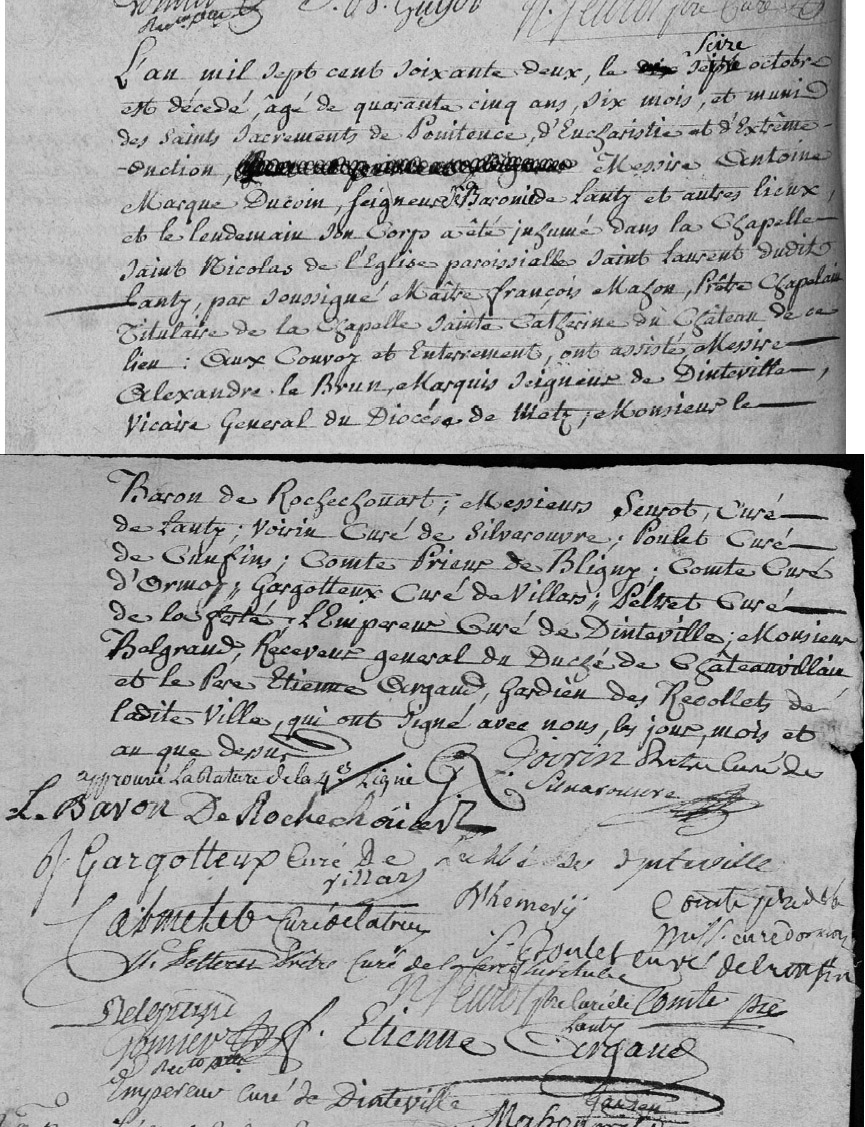 S. Guyot N. Seurot pbre Curé
L'an mil sept cent soixante deux, le seize octobre
est décedé, âgé de quarante cinq ans, six mois, et muni
des Saints Sacrements de Penitence, d'Eucharistie et d'Extrême-
-onction, Messire Antoine
Marque Ducoin, seigneur Baronie de Lanty et autres lieux,
et le lendemain son Corps a été inhumé dans la Chapelle
Saint Nicolas de l'Eglise paroissialle Saint Laurent dudit
Lanty, par soussigné Maître françois Mahon, Prêtre Chapelain
Titulaire de la Chapelle Sainte Catherine du Château de ce
lieu : Aux Convoy et Enterrement, ont assisté Messire
Alexandre le Brun, Marquis Seigneur de Dinteville,
Vicaire General du Diocése de Metz, Monsieur le
Baron de Rochechoüart ; Messieurs Seurot, Curé
de Lanty ; Voirin Curé de Silvarouvre ; Poulet Curé
de Cunfins ; Comte Prieur de Bligny ; Comte Curé
d'Ormoy ; Gargotteux Curé de Villars ; Peltret Curé
de la ferté ; L'Empereur Curé de Dinteville ; Monsieur
Belgrand, Receveur general du Duché de Châteauvillain
et le Pere Etienne Argaud, Gardien des Recollets de
ladite Ville, qui ont signé avec nous, les jour, mois et
an que dessus
approuvé la Rature de la 4e Ligne Voirin Prêtre Curé de
Silvarouvre
Le Baron De Rochechoüart
Gargotteux Curé De L'abbé de dinteville
villars
Dhemery Comte
curé dormoy
S. Poulet curé de Cunfin
Prêtre Curé de la ferté
N Seurot pbre Curé de Comte pbre
Lanty
Belgrand
f. Etienne Argaud
Empereur curé de Dinteville gardien
Mahon